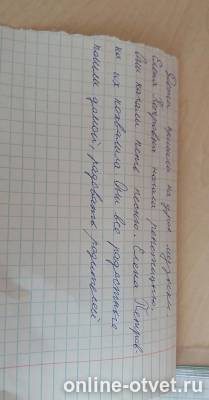 Дети пришли на урок музыки.
Елена Петровна начала репетицию.
Они начали петь песню. Елена Петров-
на их похвалила. Они все радостные
пошли домой, радовать родителей
online-otvet.ru